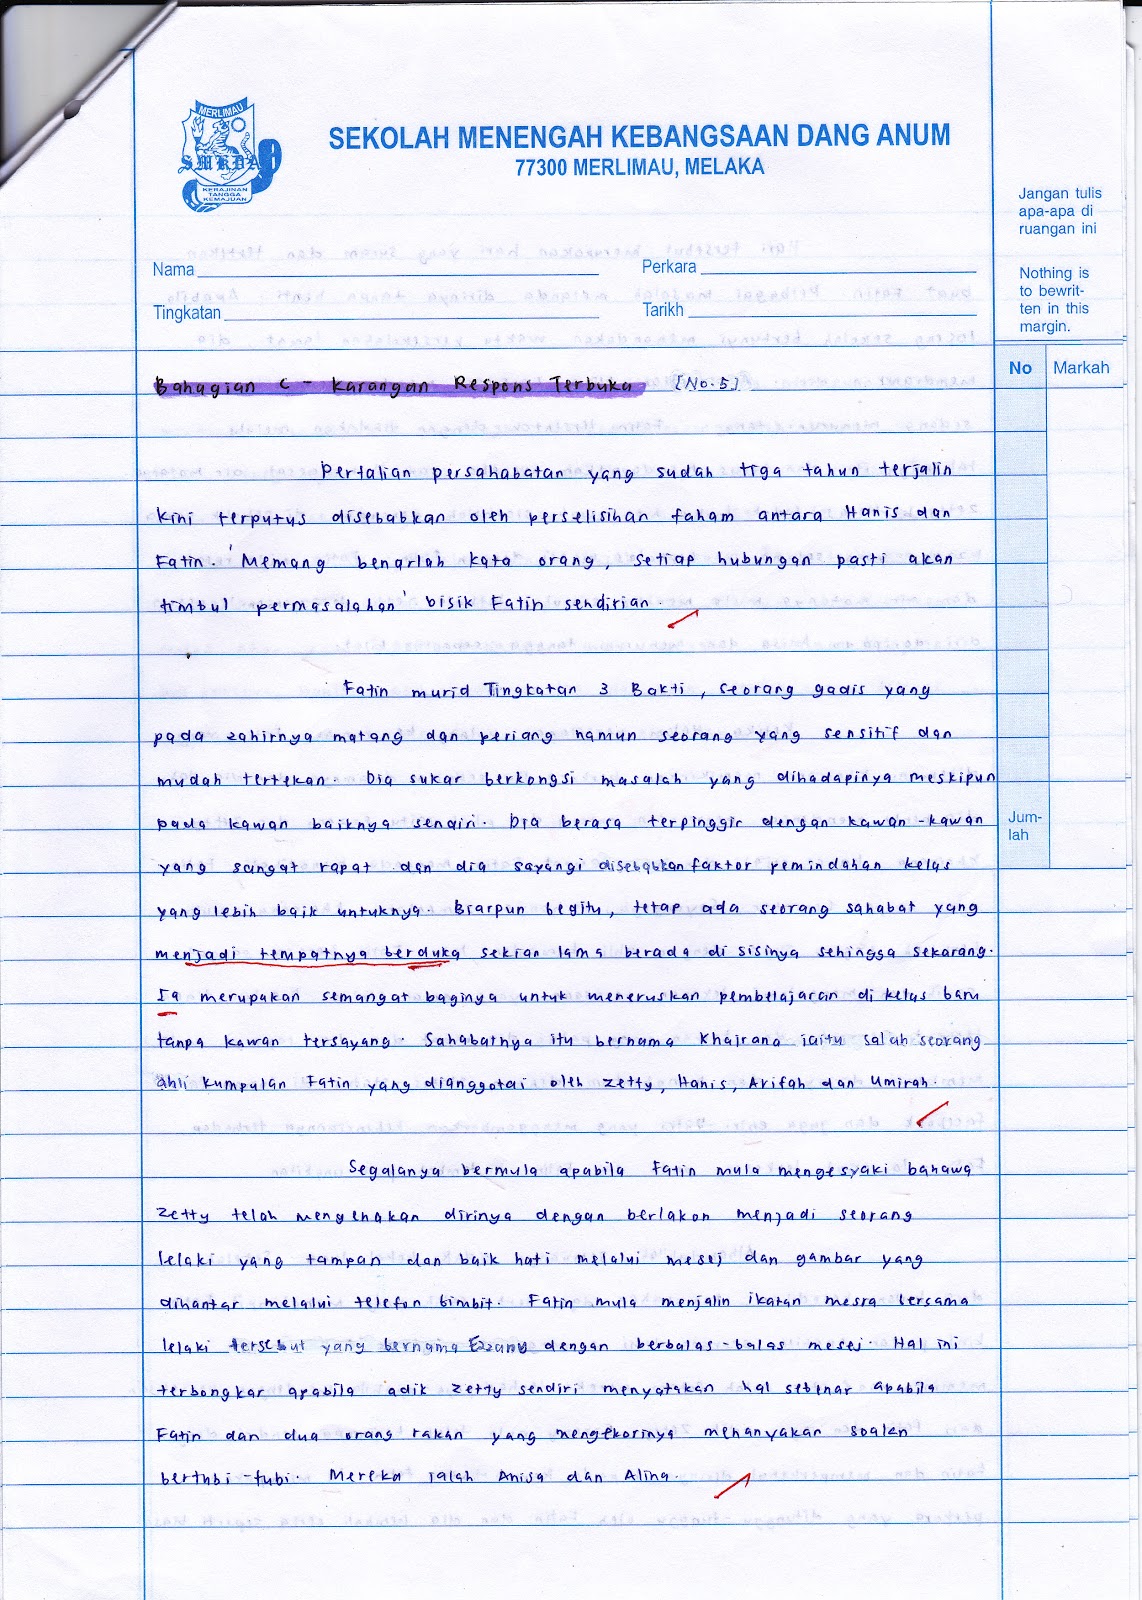 MERLIMAU
SMKDA
KERAJINAN
TANGGA
KEMAJUAN
SEKOLAH MENENGAH KEBANGSAAN DANG ANUM
77300 MERLIMAU, MELAKA
Jangan tulis
apa-apa di
ruangan ini
Nothing is
to bewrit-
ten in this
margin.
Nama
Perkara
Tingkatan
Tarikh
No
Markah
Bahagian C - Karangan Respons Terbuka [No.5]
Pertalian persahabatan yang sudah tiga tahun terjalin
kini terputus disebabkan oleh perselisihan faham antara Hanis dan
Fatin. 'Memang benarlah kata orang, setiap hubungan pasti akan
timbul permasalahan' bisik Fatin sendirian.
Fatin murid Tingkatan 3 Bakti, seorang gadis yang
pada zahirnya matang dan periang namun seorang yang sensitif dan
mudah tertekan. Dia sukar berkongsi masalah yang dihadapinya meskipun
pada kawan baiknya sendiri. Dia berasa terpinggir dengan kawan-kawan
yang sangat rapat dan dia sayangi disebabkan faktor pemindahan kelas
yang lebih baik untuknya. Biarpun begitu, tetap ada seorang sahabat yang
menjadi tempatnya berduka sekian lama berada di sisinya sehingga sekarang.
Ia merupakan semangat baginya untuk meneruskan pembelajaran di kelas baru
tanpa kawan tersayang. Sahabatnya itu bernama Khairana iaitu salah seorang
ahli kumpulan Fatin yang dianggotai oleh Zetty, Hanis, Arifah dan Umirah.
Jum-
lah
Segalanya bermula apabila Fatin mula mengesyaki bahawa
Zetty telah mengenakan dirinya dengan berlakon menjadi seorang
lelaki yang tampan dan baik hati melalui mesej dan gambar yang
dihantar melalui telefon bimbit. Fatin mula menjalin ikatan mesra bersama
lelaki tersebut yang bernama Ezzany dengan berbalas-balas mesej. Hal ini
terbongkar apabila adik Zetty sendiri menyatakan hal sebenar apabila
Fatin dan dua orang rakan yang mengekorinya menanyakan soalan
bertubi-tubi. Mereka ialah Anisa dan Alina.